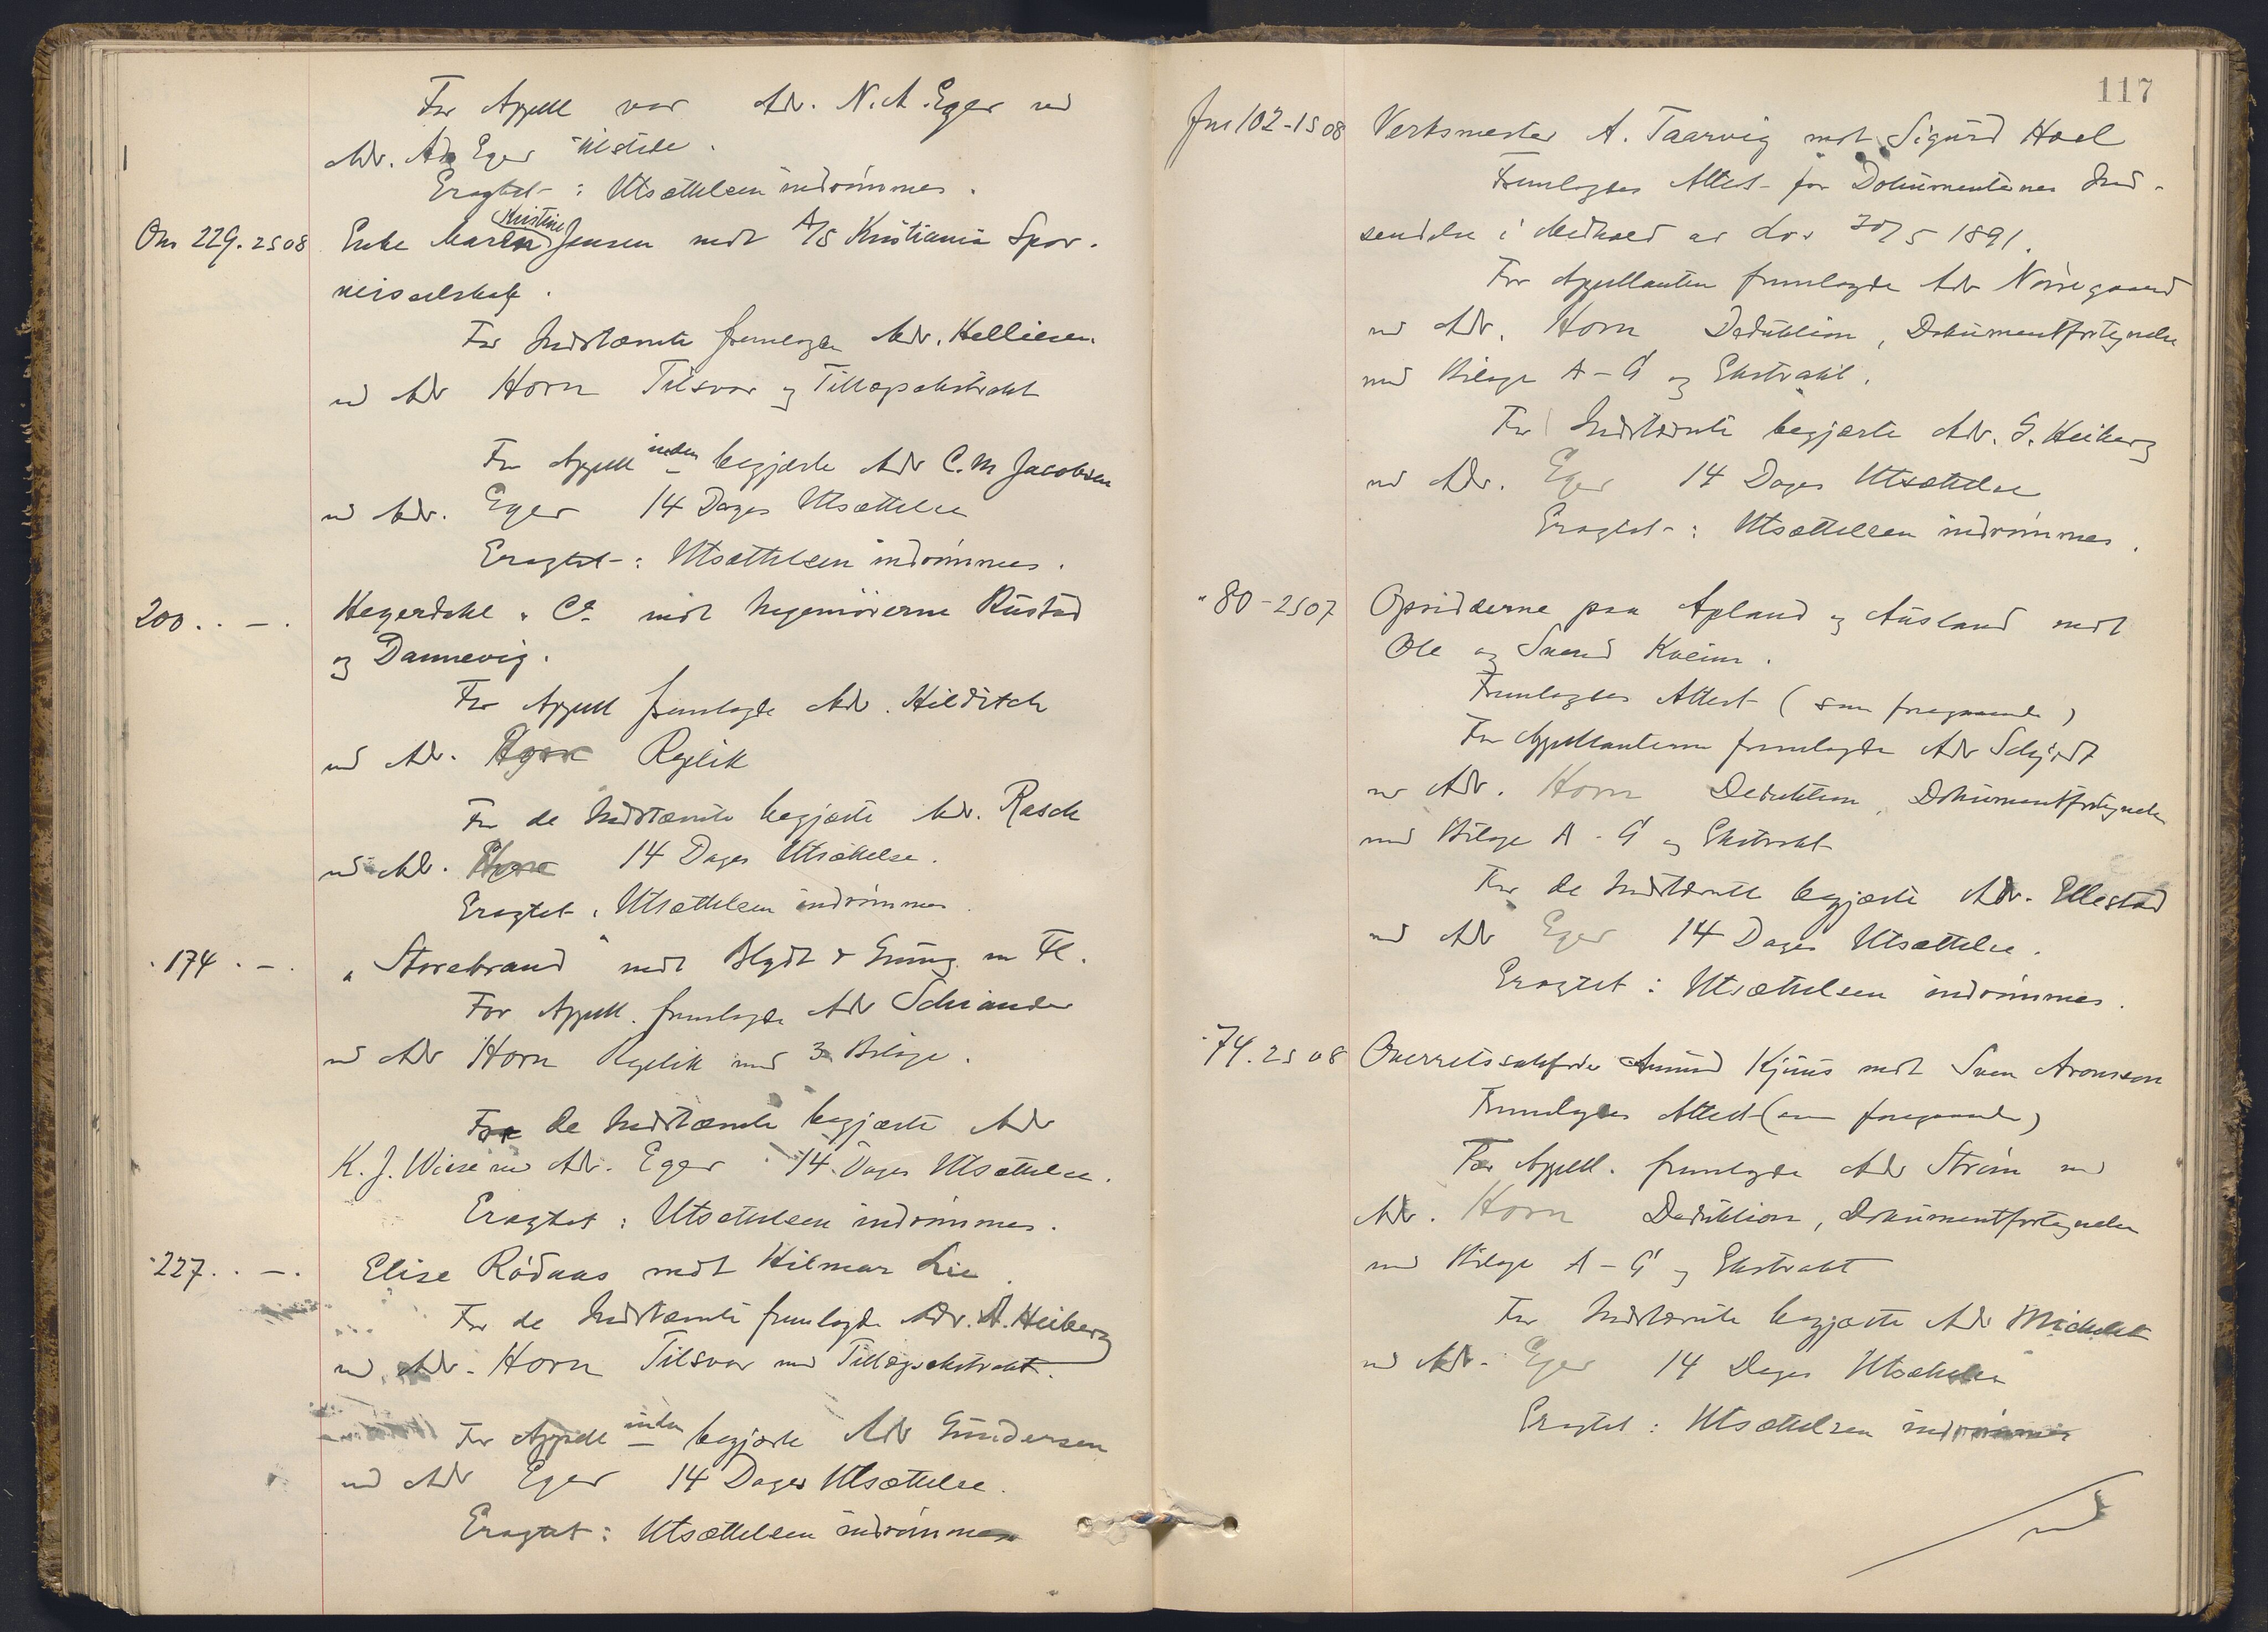 For Appell var Adv. N. A. Eger ved
Adv. Eger tilstede.
Eragtet: Utsættelsen indrømmes.
Ons 229. 2s 08 Enke Maren Kristine Jensen mot A/S Kristiania Spor-
veisselskap.
For Indstævnte fremlagde Adv. Helliesen
ved Adv Horn Tilsvar og Tillægsekstrakt
For Appellinden begjærte Adv C. M. Jacobsen
ved Adv. Eger 14 Dages Utsættelse
Eragtet: Utsættelsen indrømmes.
200 . . - . Hegerdahl & Co mot Ingeniørerne Rustad
og Dannevig.
For Appell fremlagde Adv. Hilditch
ved Adv. Replik
For de Indstævnte begjærte Adv. Rasch
ved Adv. 14 Dages Utsættelse.
Eragtet: Utsættelsen indrømmes.
" 174 . - . "Storebrand" mot Blydt & Grung m Fl.
For Appell. fremlagde Adv Schiander
ved Adv Horn Replik med 3 Bilage.
For de Indstævnte begjærte Adv
K. J. Wiese ved Adv. Eger 14 Dages Utsættelse.
Eragtet: Utsættelsen indrømmes.
" 227 . . - . Elise Rødaas mot Hilmar Lie.
For de Indstævnte fremlagde Adv. A. Heiberg
ved Adv. Horn Tilsvar med Tillægsekstrakt.
For Appellinden begjærte Adv Gundersen
ved Adv Eger 14 Dages Utsættelse.
Eragtet: Utsættelsen indrømmes
117
102-1s 08 Verksmester A. Taarvig mot Sigurd Hoel
Fremlagdes Attest for Dokumenternes Ind-
sendelse i Medhold av Lov 30/5 1891.
For Appellanten fremlagde Adv Nørregaard
ved Adv. Horn Deduktion, Dokumentfortegnelse
med Bilage A - G og Ekstrakt.
For Indstævnte begjærte Adv. G. Heiberg
ved Adv. Eger 14 Dages Utsættelse
Eragtet: Utsættelsen indrømmes.
" 80 - 2s 07 Opsidderne paa Apland og Ausland mot
Ole og Svend Kveim.
Fremlagdes Attest (som foregaaende)
For Appellanterne fremlagde Adv Schjødt
ved Adv. Horn Deduktion, Dokumentfortegnelse
med Bilage A - G og Ekstrakt
For de Indstævnte begjærte Adv. Ellestad
ved Adv Eger 14 Dages Utsættelse.
Eragtet: Utsættelsen indrømmes.
" 74. 2s 08 Overretssakfører Amund Kjuus mot Sven Aronsson
Fremlagdes Attest (som foregaaende)
For Appell. fremlagde Adv Strøm ved
Adv. Horn Deduktion, Dokumentfortegnelse
med Bilage A - G og Ekstrakt
For Indstævnte begjærte Adv Michelet
ved Adv. Eger 14 Dages Utsættelse
Eragtet: Utsættelsen indrømmes